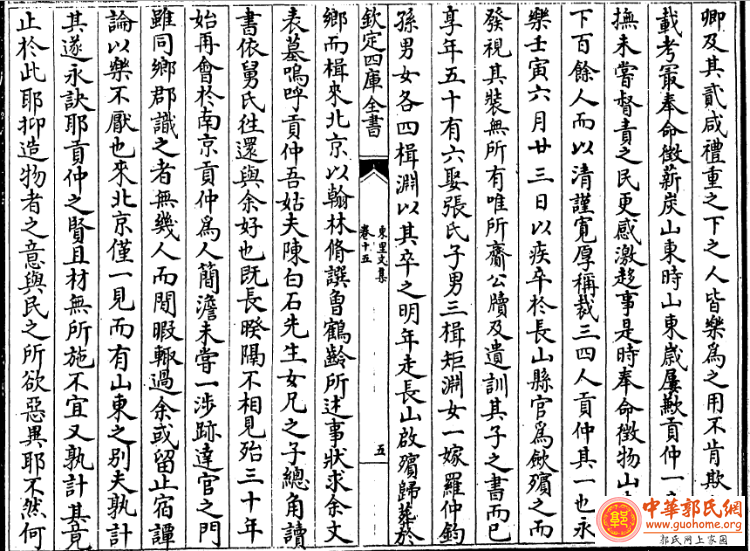 卿及其貳咸禮重之下之人皆樂為之用不肯欺
載考最奉命徵薪炭山東時山東歲屢歉貢仲一
撫未嘗督責之民更感激趍事是時奉命徵物山
下百餘人而以清謹寛厚稱裁三四人貢仲其一也永
樂壬寅六月廿三日以疾卒於長山縣官為斂殯之而
發視其裝無所有唯所齎公牘及遺訓其子之書而已
享年五十有六娶張氏子男三楫矩淵女一嫁羅仲鈞
孫男女各四楫淵以其卒之明年走長山啟殯歸葬於
欽定四庫全書
東里文集
卷十五
五
鄉而楫來北京以翰林脩譔魯鶴齡所述事狀求余文
表墓嗚呼貢仲吾姑夫陳白石先生女兄之子總角讀
書依舅氏徃還與余好也既長暌隔不相見殆三十年
始再會於南京貢仲為人簡澹未嘗一涉跡達官之門
雖同鄉郡識之者無幾人而閒暇輙過余或留止宿譚
論以樂不厭也來北京僅一見而有山東之別夫孰計
其遂永訣耶貢仲之賢且材無所施不宜又孰計其竟
止於此耶抑造物者之意與民之所欲惡異耶不然何
中華郭氏網
www.guohome.org
郭氏网上家园